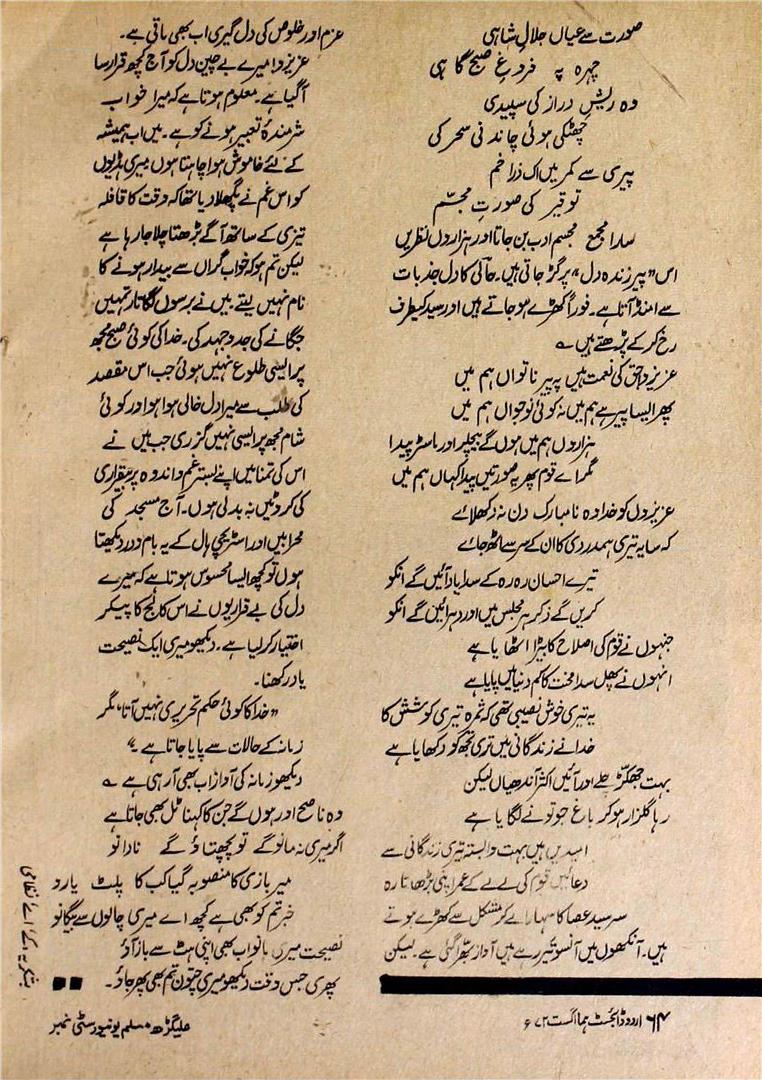 صورت سے عیاں جلالِ شاہی
چہرہ پہ فروغِ صبح گاہی
وہ ریشِ دراز کی سپیدی
چھٹکی ہوئی چاندنی سحر کی
پیری سے کمر میں اک ذرا خم
توقیر کی صورتِ مجسّم
سارا مجمع مجسم ادب بن جاتا اور ہزاروں نظریں
اس ”پیر زندہ دل“ پر گڑ جاتی ہیں۔ حالی کا دل جذبات
سے امنڈ آتا ہے۔ فوراً کھڑے ہو جاتے ہیں اور سید کیطرف
رخ کر کے پڑھتے ہیں ؎
عزیزو حق کی نعمت ہیں یہ پیر ناتواں ہم میں
پھر ایسا پیر ہے ہم میں نہ کوئی نوجواں ہم میں
ہزاروں ہم میں ہوں گے ٹیچر اور ماسٹر پیدا
مگر اے قوم پھر یہ صورتیں پیدا کہاں ہم میں
عزیزوں کو خدا وہ نا مبارک دن نہ دکھلائے
کہ سایہ تیری ہمدردی کا ان کے سر سے اٹھ جائے
تیرے احسان رہ رہ کے سدا یاد آئیں گے انکو
کریں گے ذکر ہر مجلس میں اور دہرائیں گے انکو
جنہوں نے قوم کی اصلاح کا بیڑا اٹھایا ہے
انہوں نے پھل سدا محنت کا کم دنیا میں پایا ہے
یہ تیری خوش نصیبی تھی کہ ثمرہ تیری کوشش کا
خدا نے زندگانی میں تری تجھ کو دکھایا ہے
بہت جھکڑ چلے اور آئیں اکثر آندھیاں لیکن
رہا گلزار ہو کر باغ جو تو نے لگایا ہے
امیدیں ہیں بہت وابستہ تیری زندگانی سے
دعائیں قوم کی لے لے کے عمر اپنی بڑھاتا رہ
سرسید عصا کا سہارا لے کر مشکل سے کھڑے ہوتے
ہیں۔ آنکھوں میں آنسو تیر رہے ہیں آواز بھرا گئی ہے۔ لیکن
عزم اور خلوص کی دل گیری اب بھی باقی ہے۔
عزیزو! میرے بے چین دل کو آج کچھ قرار سا
آگیا ہے۔ معلوم ہوتا ہے کہ میرا خواب
شرمندۂ تعبیر ہونے کو ہے۔ میں اب ہمیشہ
کے لئے خاموش ہوا چاہتا ہوں میری ہڈیوں
کو اس غم نے پگھلا دیا تھا کہ وقت کا قافلہ
تیزی کے ساتھ آگے بڑھتا چلا جا رہا ہے
لیکن تم ہو کہ خواب گراں سے بیدار ہونے کا
نام نہیں لیتے میں نے برسوں لگاتار تمہیں
جگانے کی جدوجہد کی۔ خدا کی کوئی صبح مجھ
پر ایسی طلوع نہیں ہوئی جب اس مقصد
کی طلب سے میرا دل خالی ہوا ہو اور کوئی
شام مجھ پر ایسی نہیں گزری جب میں نے
اس کی تمنا میں اپنے بستر غم و اندوہ پر بیقراری
کی کروٹیں نہ بدلی ہوں۔ آج مسجد کی
محرابیں اور اسٹریچی ہال کے یہ بام و در دیکھتا
ہوں تو کچھ ایسا محسوس ہوتا ہے کہ میرے
دل کی بے قراریوں نے اس کالج کا پیکر
اختیار کر لیا ہے۔ دیکھو میری ایک نصیحت
یاد رکھنا۔
”خدا کا کوئی حکم تحریری نہیں آتا، مگر
زمانہ کے حالات سے پایا جاتا ہے۔“
دیکھو زمانہ کی آواز اب بھی آ رہی ہے ؎
وہ ناصح اور ہوں گے جن کا کہنا ٹل بھی جاتا ہے
اگر میری نہ مانو گے تو پچھتاؤ گے نادانو
میر بازی کا منصوبہ گیا کب کا پلٹ یارو
خبر تم کو بھی ہے کچھ اے میری چالوں سے بیگانو
نصیحت میری مانو اب بھی اپنی ہٹ سے باز آؤ
پھری جس وقت دیکھو میری چتون تم بھی پھر جاؤ۔
بشکریہ کے اے نظامی
۶۴ اردو ڈائجسٹ ہما اگست ۷۲ء
علیگڑھ مسلم یونیورسٹی نمبر